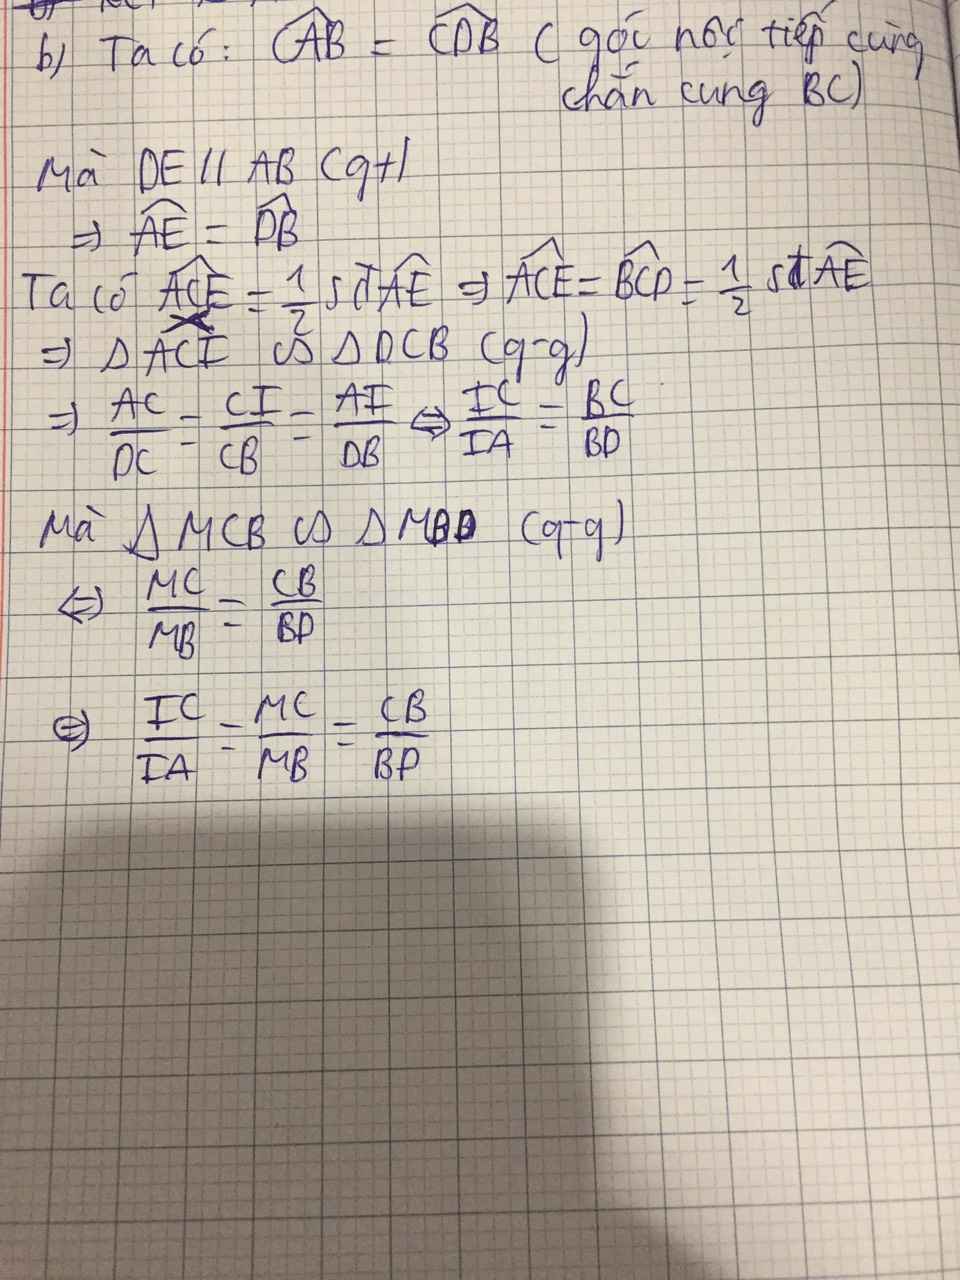 b) Ta có: CAB = CDB ( góc nội tiếp cùng
chắn cung BC)
Mà DE // AB (gt)
=> AE = DB
Ta có ACE = 1/2 sđ AE => ACE = BCD = 1/2 sđ AE
=> Δ ACI ∽ Δ DCB (g-g)
=> AC/DC = CI/CB = AI/DB <=> IC/IA = BC/BD
Mà Δ MCB ∽ Δ MBD (g-g)
<=> MC/MB = CB/BD
=> IC/IA = MC/MB = CB/BD